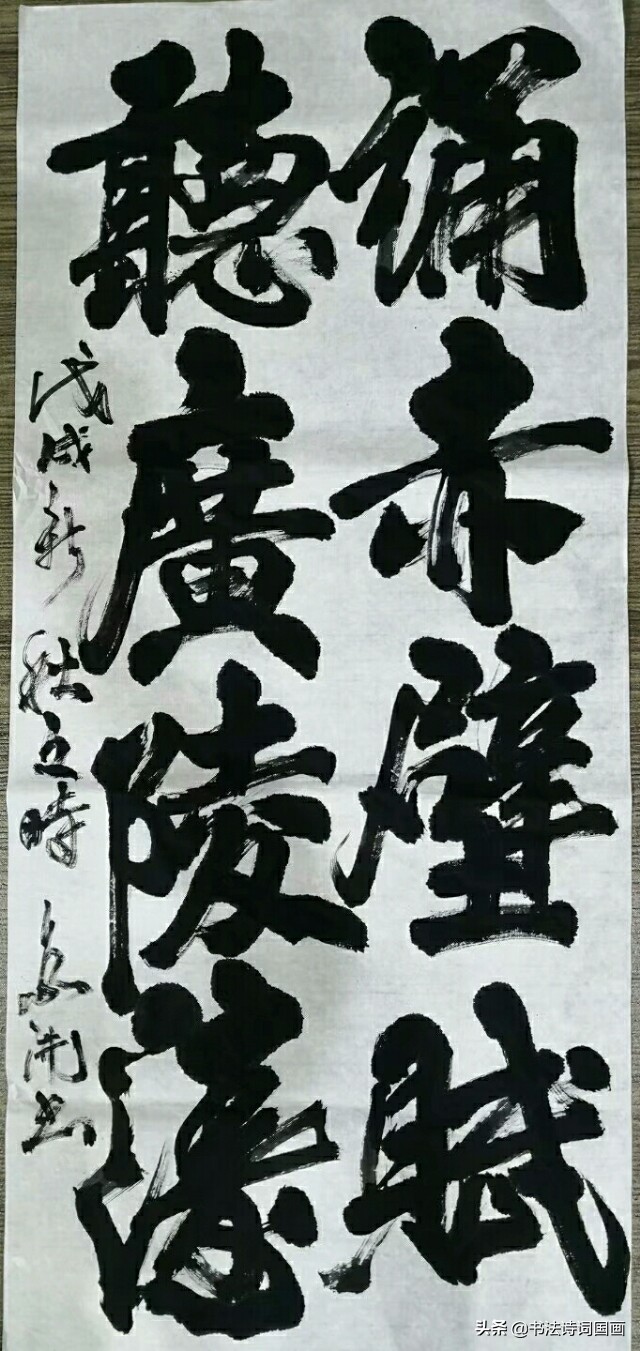 誦赤壁賦
聽廣陵濤
戊戌新秋立時 開書
头条 @书法诗词国画